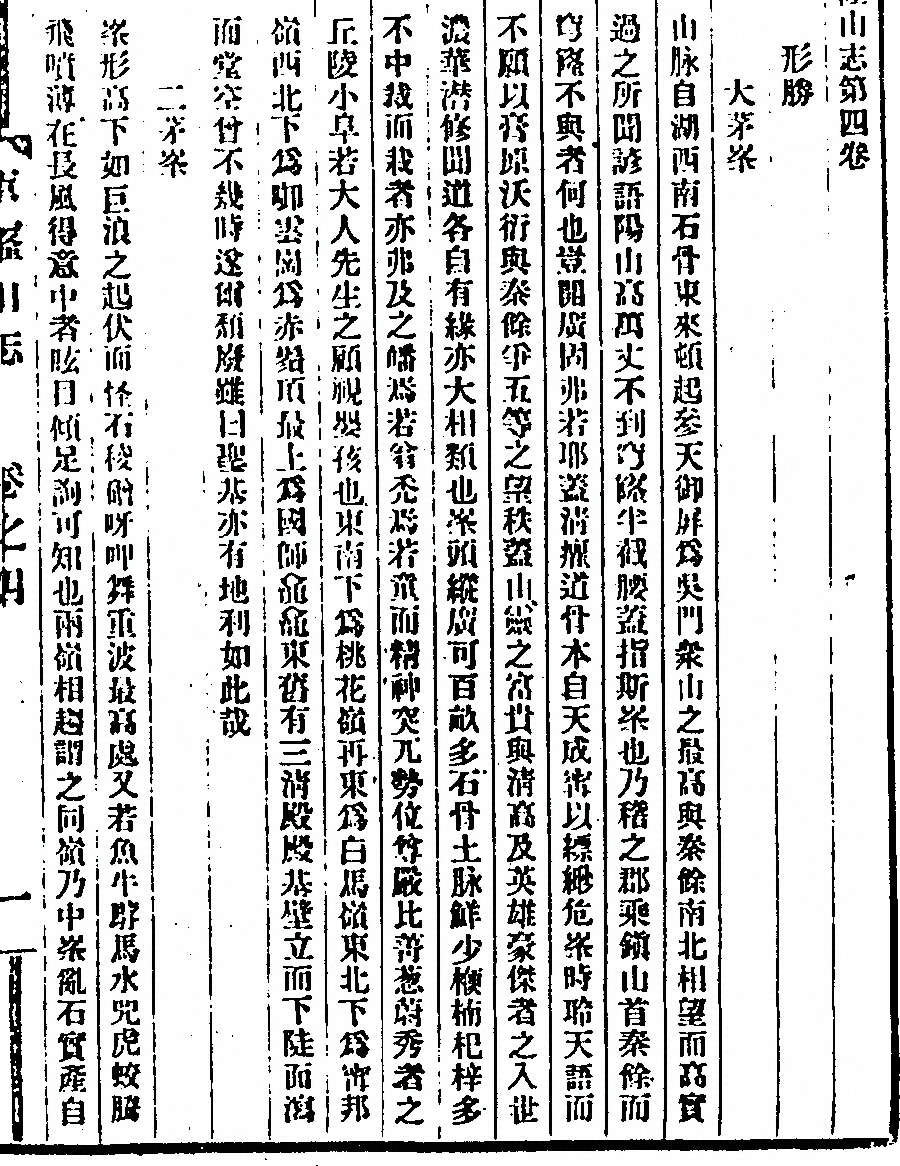 山志第四卷
形勝
大茅峯
山脉自湖西南石骨東來頓起参天御屏爲吳門衆山之最高與秦餘南北相望而高實
過之所聞諺語陽山高萬丈不到穹窿半截腰蓋指斯峯也乃稽之郡乘鎮山首秦餘而
穹窿不與者何也豈開廣固弗若耶蓋清癯道骨本自天成甯以縹緲危峯時聆天語而
不願以膏原沃衍與秦餘爭五等之望秩蓋山靈之富貴與清高及英雄豪傑者之入世
濃華潜修聞道各自有緣亦大相類也峯頭縱廣可百畝多石骨土脉鮮少楩楠杞梓多
不中栽而栽者亦弗及之皤焉若翁禿焉若童而精神突兀勢位尊嚴比菩葱蔚秀者之
丘陵小阜若大人先生之顧視嬰孩也東南下爲桃花嶺再東爲白馬嶺東北下爲甯邦
嶺西北下爲啣雲岡爲赤 頂最上爲國師龕龕東舊有三清殿殿基壁立而下陡而瀉
而堂空曾不幾時遂爾頹廢雖曰聖基亦有地利如此哉
二茅峯
峯形高下如巨浪之起伏而怪石稜磳呀呷舞重波最高處又若魚牛群馬水兕虎蛟騰
飛噴薄在長風得意中者眩目傾足詢可知也兩嶺相趨謂之同嶺乃中峯亂石實産自
卷之四
一